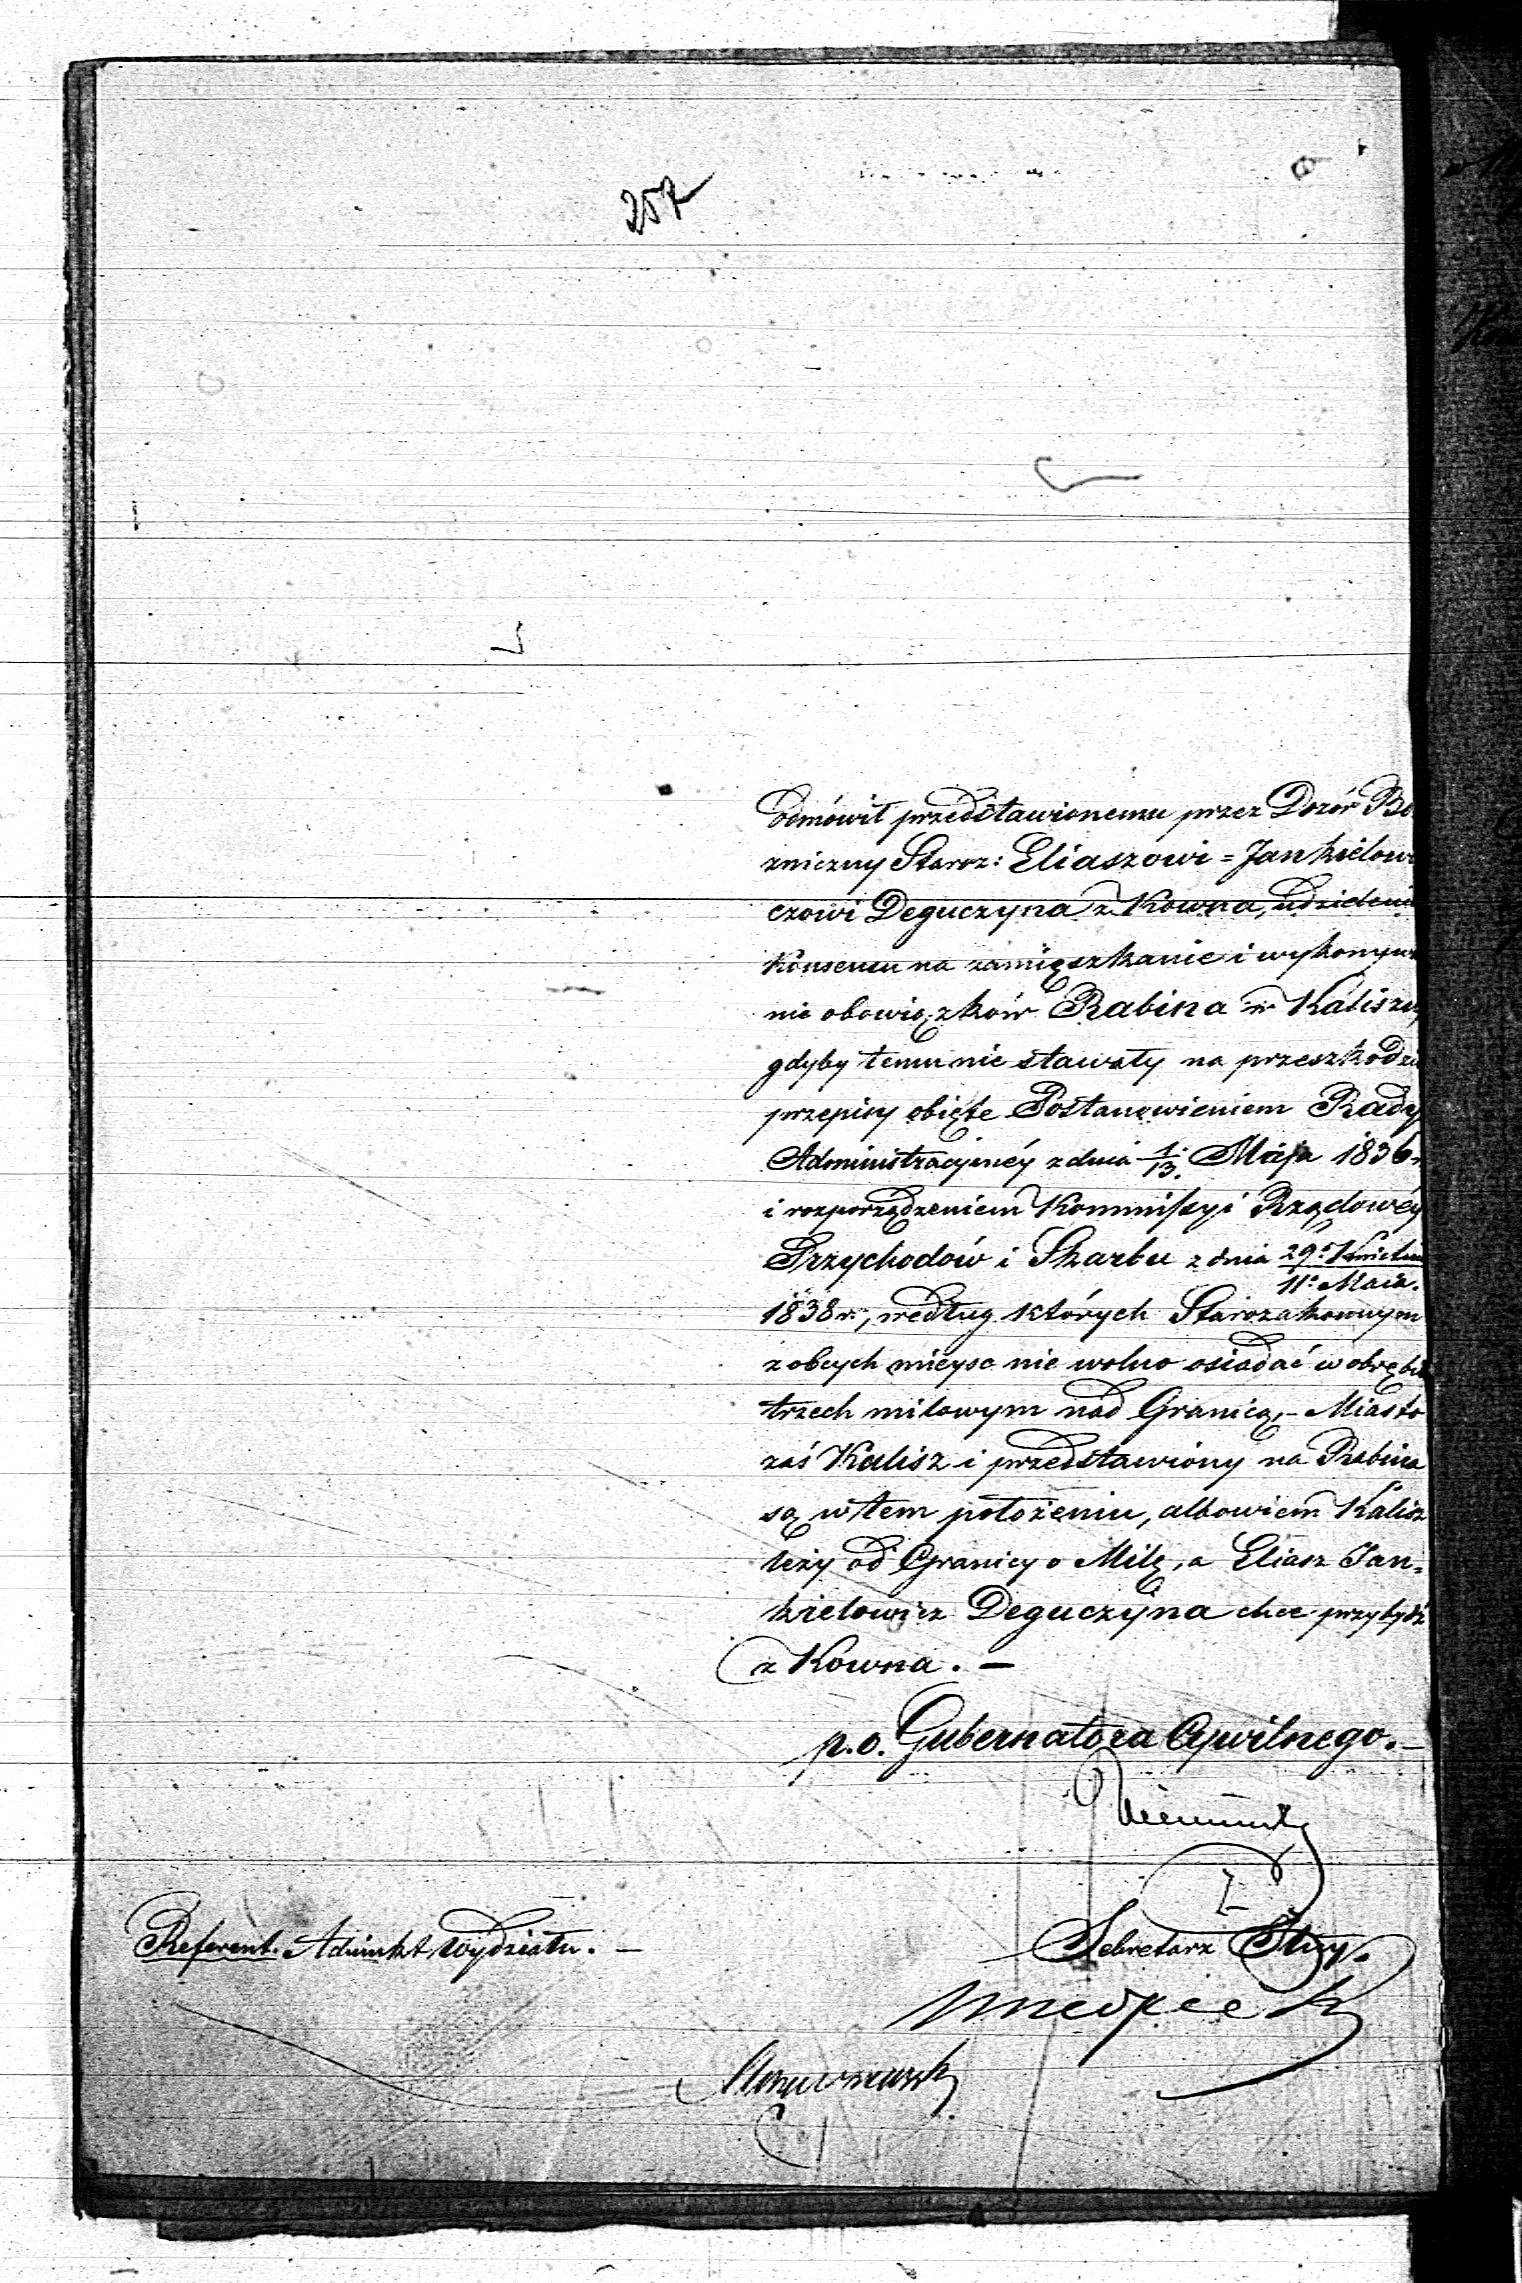 257
odmówił przedstawionemu przez Dozór Bo
zniczny Staroz: Eliaszowi = Jankielowi
czowi Deguczyna z Kowna, udzielenia
Konsensu na zamięszkanie i wykonywa
nie obowiązków Rabina w Kaliszu,
gdyby temu nie stawały na przeszkodzie
przepisy obięte Postanowieniem Rady
Administracyinéy z dnia 1/13. Maja 1836 r.
i rozporządzeniem Kommissyi Rządowéy
Przychodów i Skarbu z dnia 29. Kwietnia / 11. Maia.
1838 r., według których Starozakonnym
z obcych mieysc nie wolno osiadać w obrębie
trzech milowym nad Granicą, - Miasto
zaś Kalisz i przedstawiony na Rabina
są w tem położeniu, albowiem Kalisz
leży od Granicy o Milę, a Eliasz Jan=
kielowicz Deguczyna chce przybydź
z Kowna. —
p.o. Gubernatora Cywilnego. —
Sekretarz
Referent. Adiunkt Wydziału. —